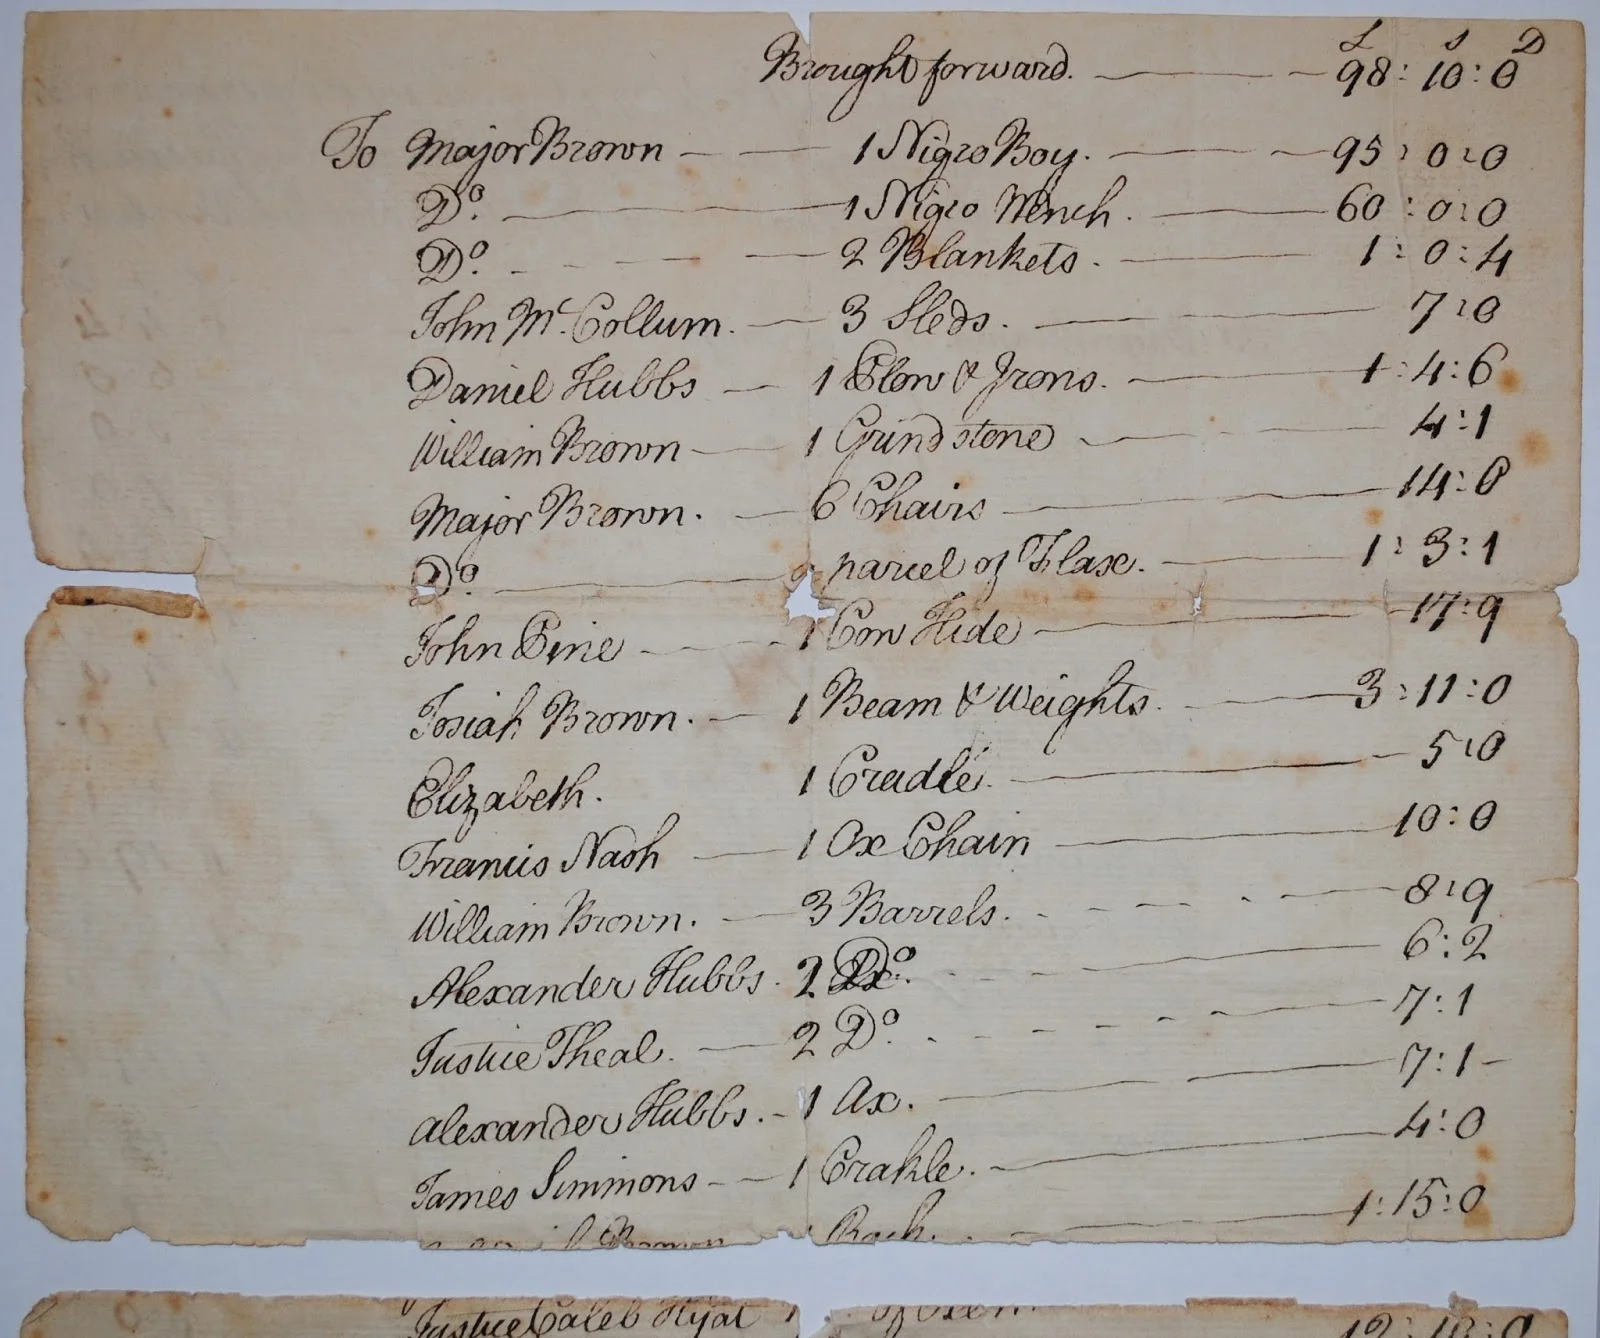 L S D
Brought forward. 98:10:0
To Major Brown 1 Nigro Boy. 95:0:0
Do. 1 Nigro Wench. 60:0:0
Do. 2 Blankets. 1:0:4
John Mc. Collum. 3 Sleds. 7:0
Daniel Hubbs 1 Plow & Irons. 1:4:6
William Brown 1 Grindstone 4:1
Major Brown. 6 Chairs 14:0
Do. a parcel of Flax. 1:3:1
John Pine 1 Cow Hide 17:9
Josiah Brown. 1 Beam & Weights. 3:11:0
Elizabeth. 1 Cradle. 5:0
Francis Nash 1 Ox Chain 10:0
William Brown. 3 Barrels. 8:9
Alexander Hubbs. 2 Do. 6:2
Justice Theal. 2 Do. 7:1
Alexander Hubbs. 1 Ax. 7:1
James Simmons 1 Crakle. 4:0
Brown 1:15:0
Justice Caleb Hyat of Oxen.